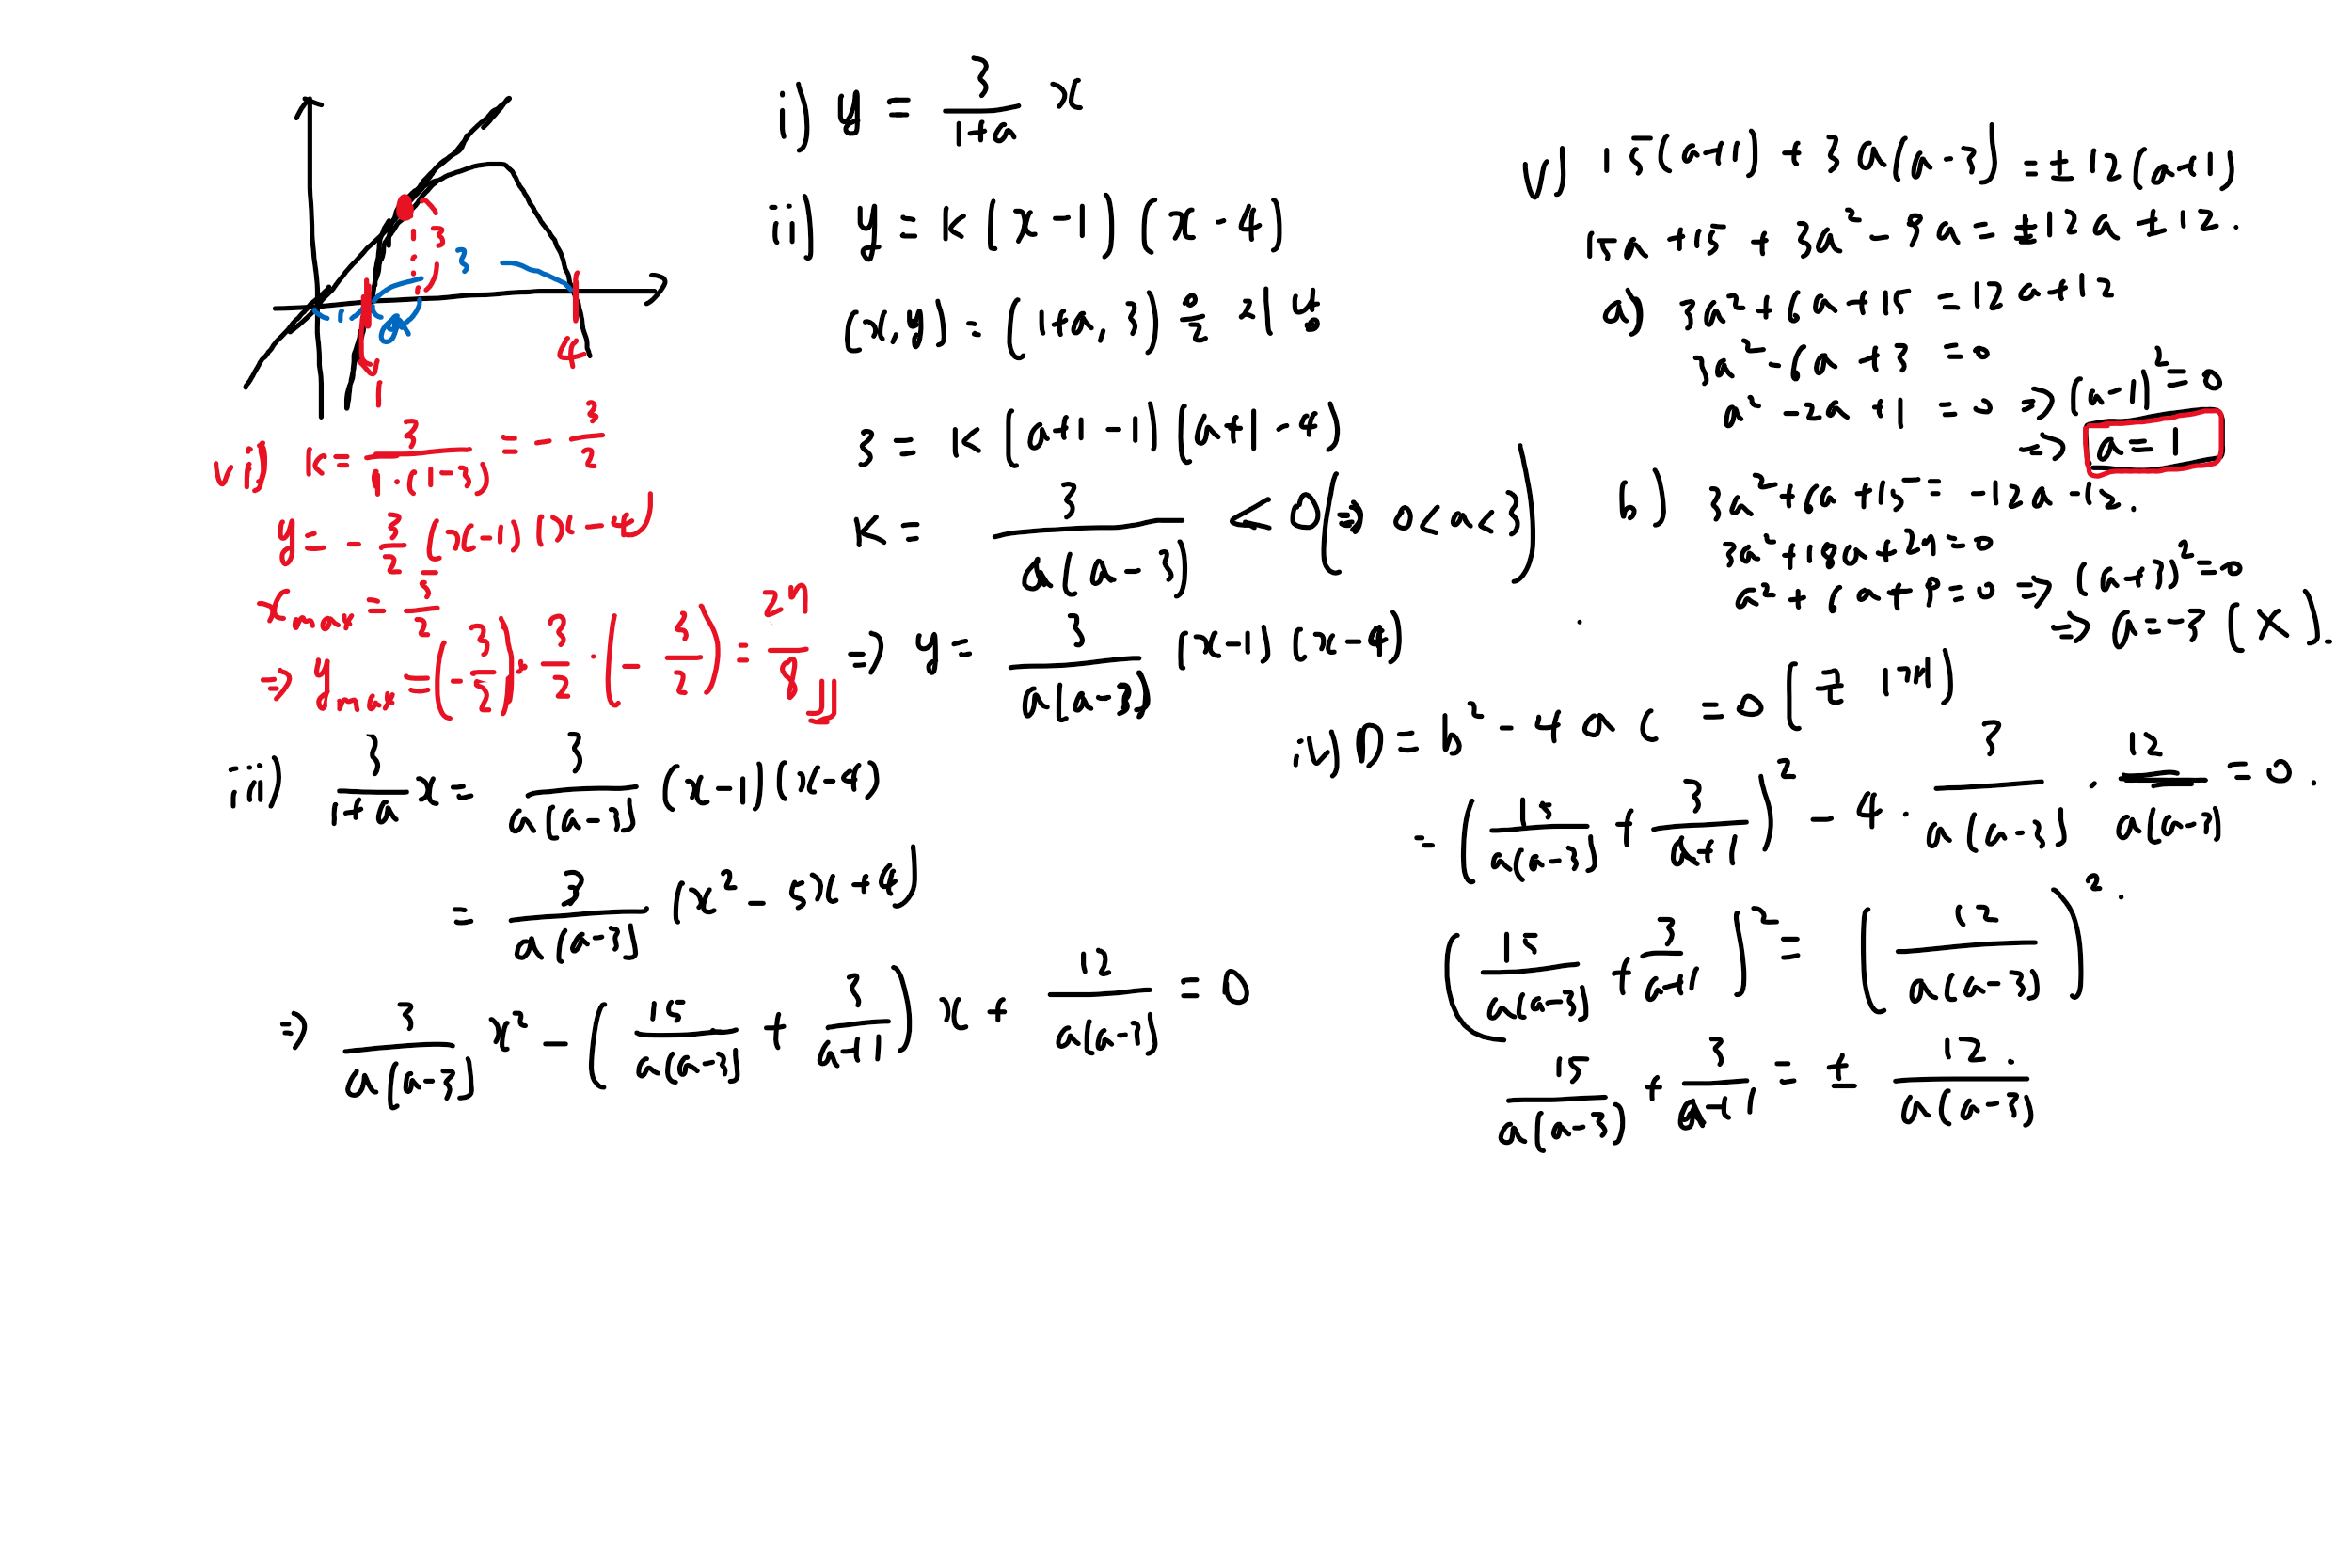 3
3
1
a
1
4
i) y = \frac{3}{1+a} x
ii) y = k(x-1)(x-4)
(x,y) = (1+a, 3)을 대입
3 = k(a+1-1)(a+1-4)
k = \frac{3}{a(a-3)} < 0 (∵ 0<a<3)
⇒ y = \frac{3}{a(a-3)} (x-1)(x-4)
iii) \frac{3}{1+a} x = \frac{3}{a(a-3)} (x-1)(x-4)
= \frac{3}{a(a-3)} (x^2-5x+4)
⇒ \frac{3}{a(a-3)} x^2 - (\frac{15}{a(a-3)} + \frac{3}{a+1}) x + \frac{12}{a(a-3)} = 0
iv) D = b^2-4ac = 0
= (\frac{15}{a(a-3)} + \frac{3}{a+1})^2 - 4 · \frac{3}{a(a-3)} · \frac{12}{a(a-3)} = 0.
(\frac{15}{a(a-3)} + \frac{3}{a+1})^2 = (\frac{12}{a(a-3)})^2.
\frac{15}{a(a-3)} + \frac{3}{a+1} = ± \frac{12}{a(a-3)}.
v) 15(a+1) + 3a(a-3) = ±12(a+1)
15a+15+3a^2-9a = ±12a+12.
a) 3a^2+6a+15 = 12a+12
3a^2-6a+3 = 0
a^2-2a+1 = 0 ⇒ (a-1)^2=0
⇒ a=1
b) 3a^2+6a+15 = -12a-12.
3a^2+18a+27=0
a^2+6a+9=0 ⇒ (a+3)^2=0
⇒ a=-3 (X).
vi) k = \frac{3}{1·(1-3)} = -\frac{3}{2}
y = -\frac{3}{2}(x-1)(x-4)
x_{max} = \frac{5}{2}
⇒ y_{max} = (-\frac{3}{2})·\frac{3}{2}·(-\frac{3}{2}) = \frac{27}{8}